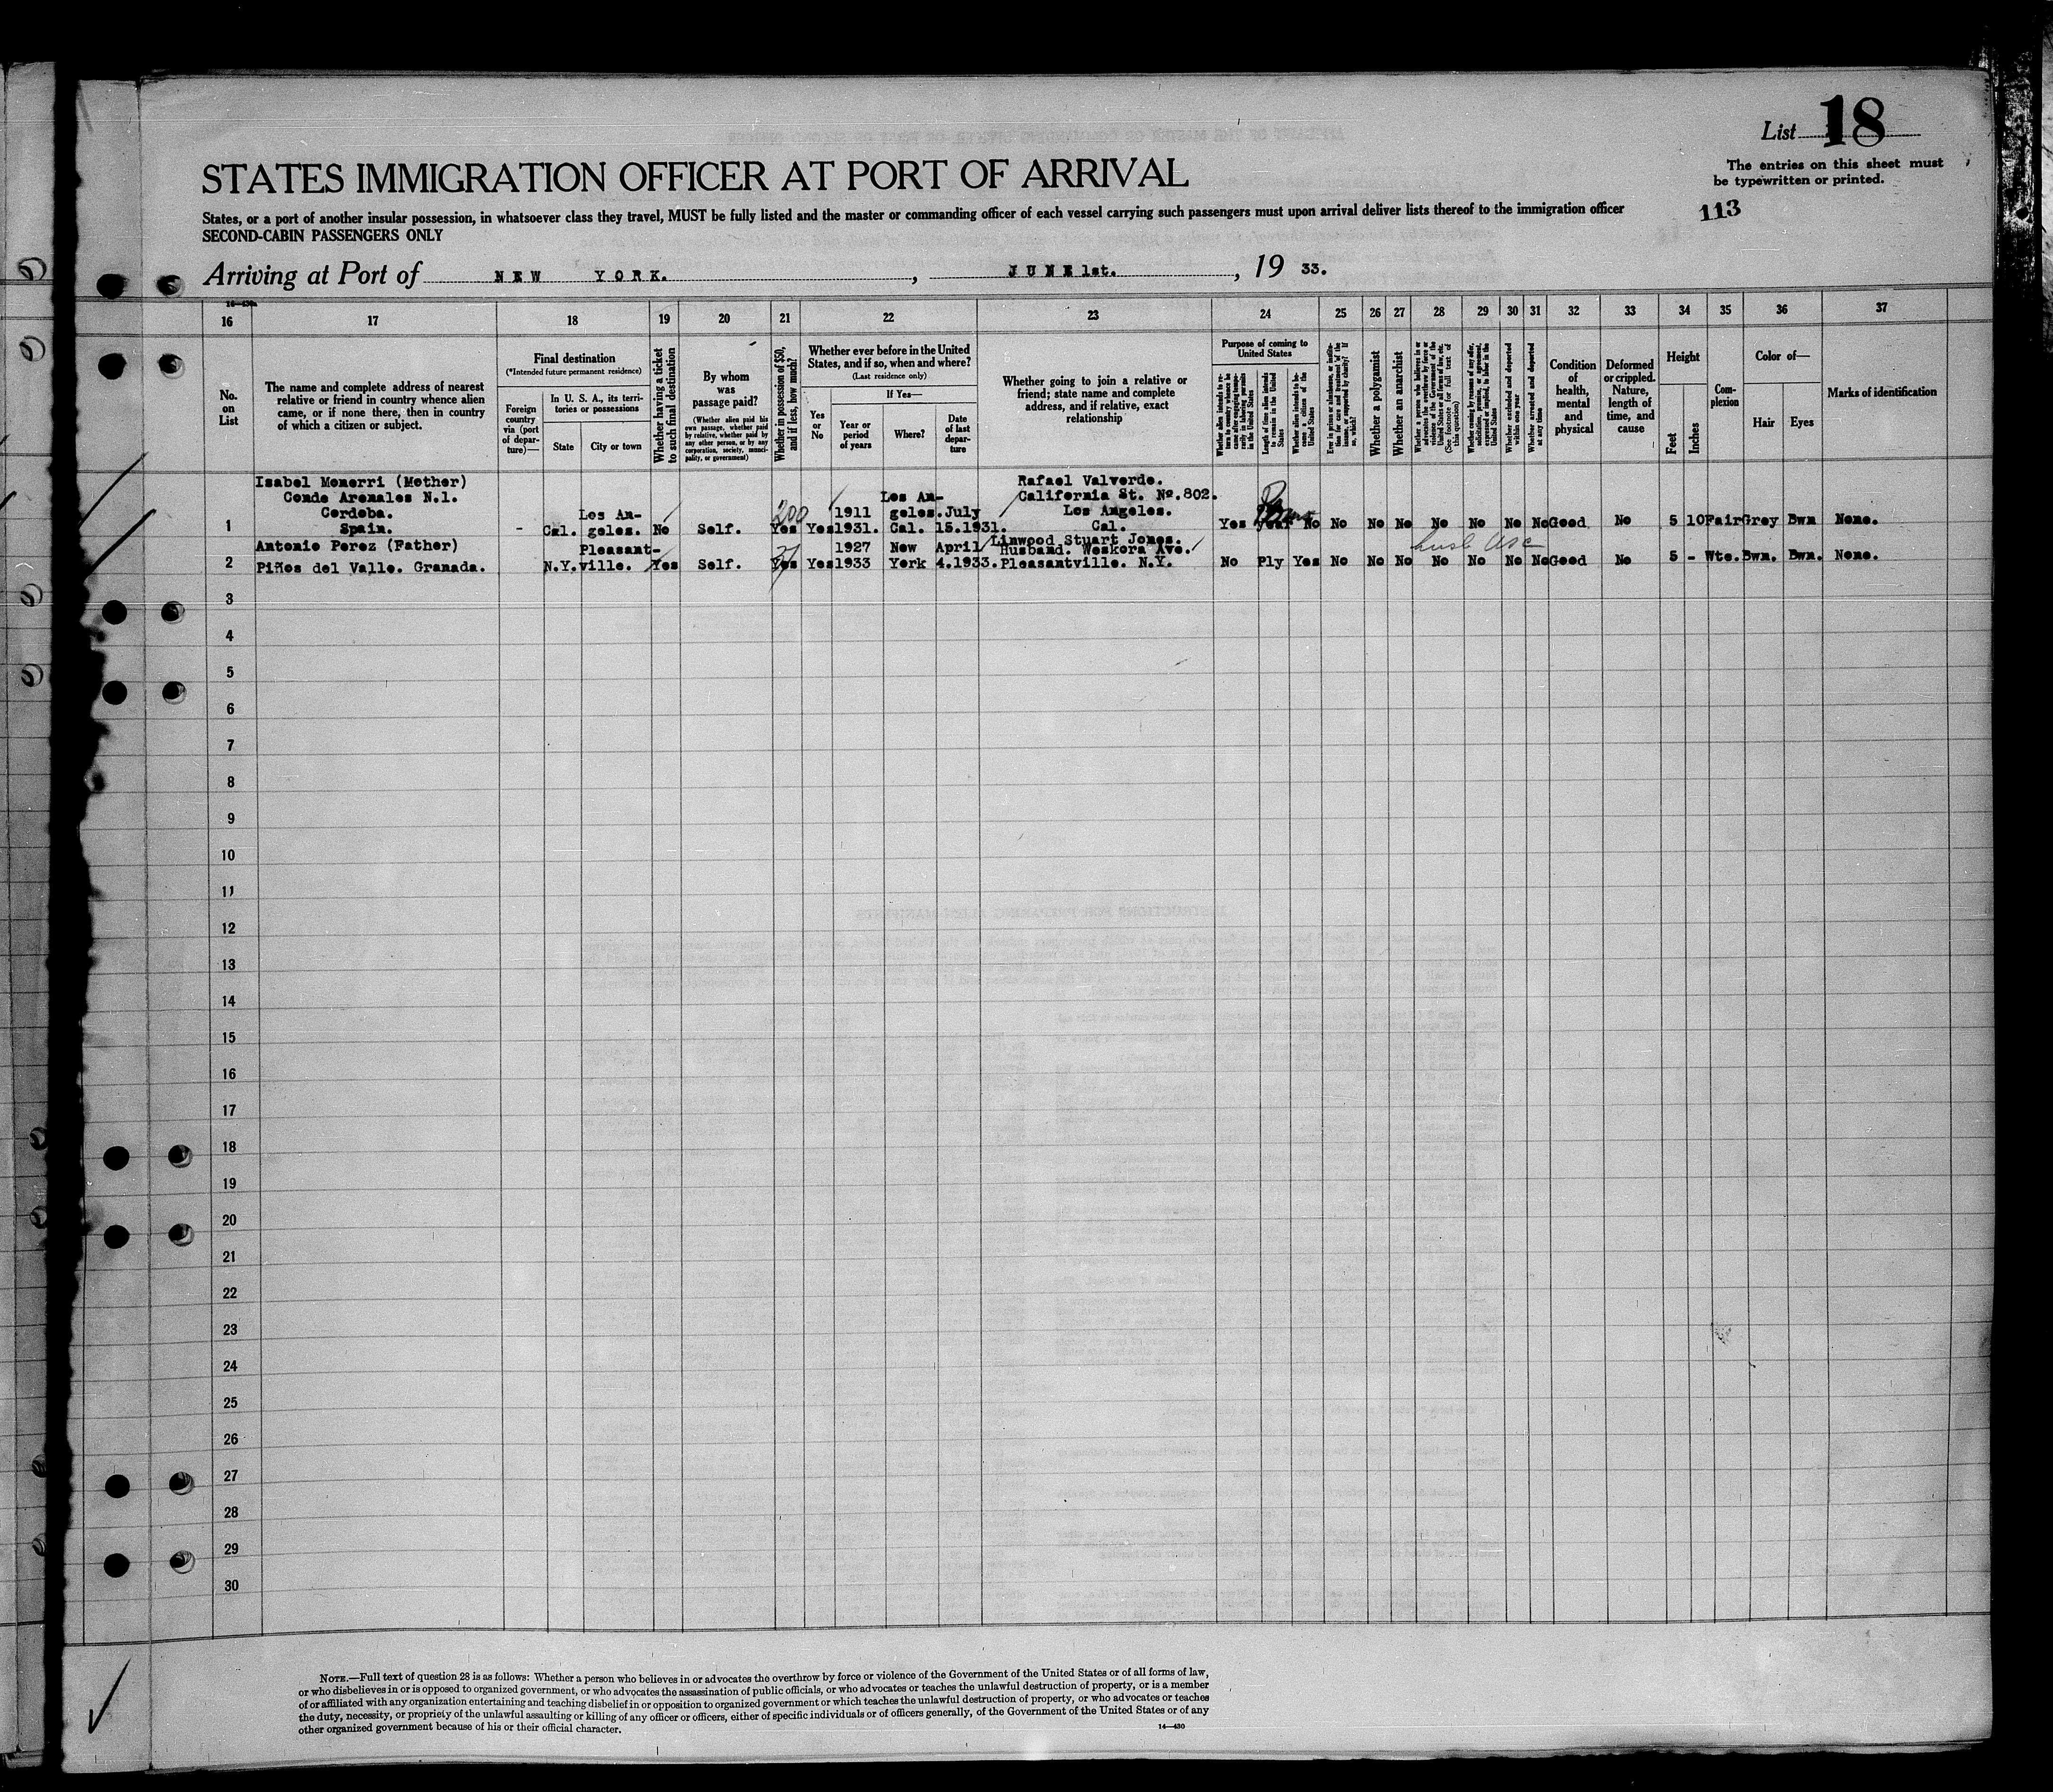 List 18
The entries on this sheet must
be typewritten or printed.
113
STATES IMMIGRATION OFFICER AT PORT OF ARRIVAL
States, or a port of another insular possession, in whatsoever class they travel, MUST be fully listed and the master or commanding officer of each vessel carrying such passengers must upon arrival deliver lists thereof to the immigration officer
SECOND-CABIN PASSENGERS ONLY
Arriving at Port of NEW YORK. , JUNE 1st. , 19 33.
16 17 18 19 20 21 22 23 24 25 26 27 28 29 30 31 32 33 34 35 36 37
No.
on
List
The name and complete address of nearest
relative or friend in country whence alien
came, or if none there, then in country
of which a citizen or subject.
Final destination
(*Intended future permanent residence)
Foreign
country
via (port
of depar-
ture)—
In U. S. A., its terri-
tories or possessions
State
City or town
Whether having a ticket
to such final destination
By whom
was
passage paid?
(Whether alien paid his
own passage, whether paid
by relative, whether paid by
any other person, or by any
corporation, society, munici-
pality, or government)
Whether in possession of $50,
and if less, how much?
Whether ever before in the United
States, and if so, when and where?
(Last residence only)
Yes
or
No
If Yes—
Year or
period
of years
Where?
Date
of last
depar-
ture
Whether going to join a relative or
friend; state name and complete
address, and if relative, exact
relationship
Purpose of coming to
United States
Whether alien intends to re-
turn to country whence he
came after engaging tempo-
rarily in laboring pursuits
in the United States
Length of time alien intends
to remain in the United
States
Whether alien intends to be-
come a citizen of the
United States
Ever in prison or almshouse, or institu-
tion for care and treatment of the
insane, or supported by charity? If
so, which?
Whether a polygamist
Whether an anarchist
Whether a person who believes in or
advocates the overthrow by force or
violence of the Government of the
United States or all forms of law, etc.
(See footnote for full text of
this question)
Whether coming by reason of any offer,
solicitation, promise, or agreement,
expressed or implied, to labor in the
United States
Whether excluded and deported
within one year
Whether arrested and deported
at any time
Condition
of
health,
mental
and
physical
Deformed
or crippled.
Nature,
length of
time, and
cause
Height
Feet
Inches
Com-
plexion
Color of—
Hair
Eyes
Marks of identification
Isabel Monerri (Mother)
Conde Arenales N.1.
Cordoba.
Spain.
1 - Cal. Los An-
geles. No Self. 200 Yes Yes 1911
1931. Los An-
geles.
Cal. July
15.1931.
Rafael Valverde.
California St. No.802.
Los Angeles.
Cal.
Yes year No No No No No No No No Good No 5 10 Fair Grey Bwn None.
Antonio Perez (Father)
Piños del Valle. Granada.
2 N.Y. Pleasant-
ville. Yes Self. Yes Yes 1927
1933 New
York April
4.1933.
Linwood Stuart Jones.
Husband. Weskora Ave.
Pleasantville. N.Y.
No Ply Yes No No No No No No No Good No 5 - Wte. Bwn. Bwn. None.
3
4
5
6
7
8
9
10
11
12
13
14
15
16
17
18
19
20
21
22
23
24
25
26
27
28
29
30
NOTE.—Full text of question 28 is as follows: Whether a person who believes in or advocates the overthrow by force or violence of the Government of the United States or of all forms of law,
or who disbelieves in or is opposed to organized government, or who advocates the assassination of public officials, or who advocates or teaches the unlawful destruction of property, or is a member
of or affiliated with any organization entertaining and teaching disbelief in or opposition to organized government or which teaches the unlawful destruction of property, or who advocates or teaches
the duty, necessity, or propriety of the unlawful assaulting or killing of any officer or officers, either of specific individuals or of officers generally, of the Government of the United States or of any
other organized government because of his or their official character.
14—430